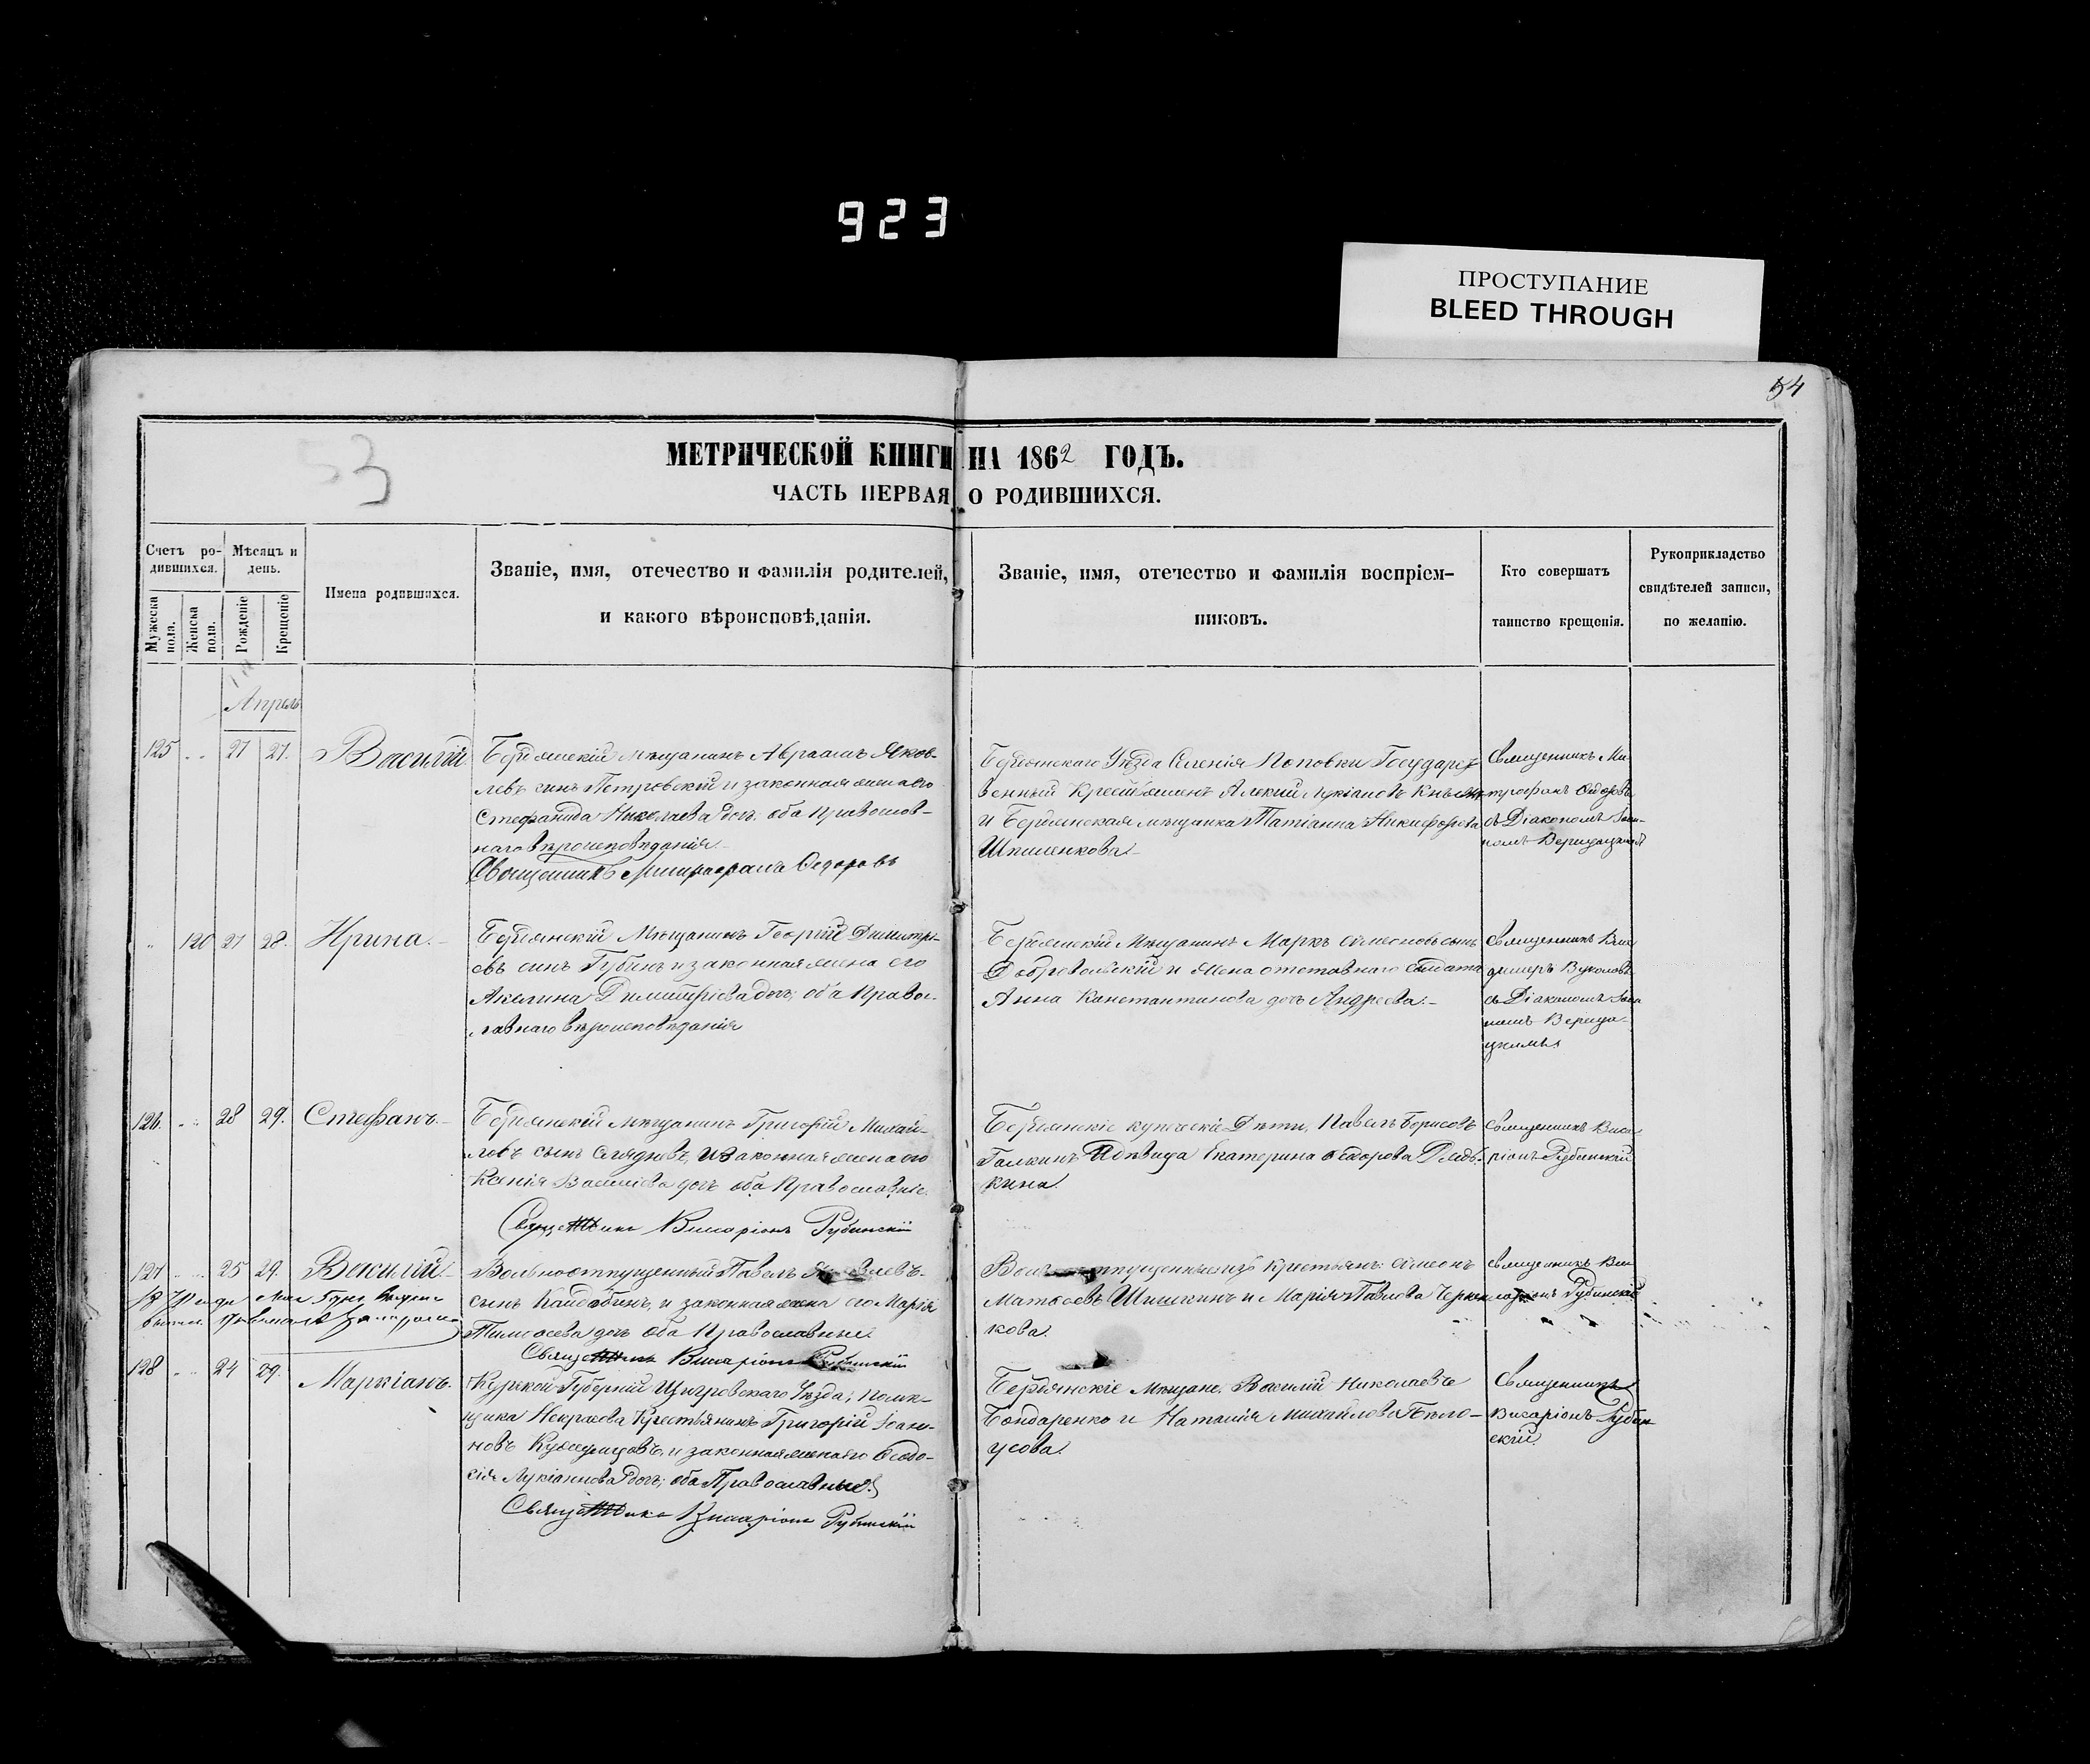 923
ПРОСТУПАНИЕ
BLEED THROUGH
54
53
МЕТРИЧЕСКОЙ КНИГИ НА 1862 ГОДЪ.
ЧАСТЬ ПЕРВАЯ О РОДИВШИХСЯ.
Счетъ ро-
дившихся.
Мужеска
пола.
Женска
пола.
Мѣсяцъ и
день.
Рожденіе
Крещеніе
Имена родившихся.
Званіе, имя, отечество и фамилія родителей,
и какого вѣроисповѣданія.
Званіе, имя, отечество и фамилія воспріем-
никовъ.
Кто совершатъ
таинство крещенія.
Рукоприкладство
свидѣтелей записи,
по желанію.
Апрель
125 27 27. Василій
Бердянскій мѣщанинъ Авраамъ Яков-
левъ сынъ Петровскій и законная жена его
Стефанида Николаева дочь; оба православ-
наго вѣроисповѣданія
Священникъ Митрофанъ Федоровъ
Бердянскаго Уѣзда Селенія Поповки Государст
венный Крестьянинъ Алексій Лукіановъ
и Бердянская мѣщанка Татіанна Никифорова
Шпиленкова
Священникъ Ми-
трофанъ Федоровъ
съ Діакономъ Іоан-
номъ
120 27 28. Ирина.
Бердянскій Мѣщанинъ Георгій Димитрі-
евъ сынъ Губинъ и законная жена его
Акилина Димитріева дочь; оба Правос-
лавнаго вѣроисповѣданія
Бердянскій Мѣщанинъ Маркъ Симеоновъ сынъ
Добровольскій и Жена отставнаго солдата
Анна Константинова дочь Андреева.
Священникъ Вла
димиръ Вуколовъ
съ Діакономъ Іоан
номъ
126. 28 29. Стефанъ.
Бердянскій мѣщанинъ Григорій Михай-
ловъ сынъ и законная жена его
Ксенія Василіева дочь оба Православніе.
Священникъ Виссаріонъ Рубинскій
Бердянскіе купеческіе Дѣти, Павелъ Борисовъ
Галкинъ и дѣвица Екатерина Федорова
кина.
Священникъ Висса
ріонъ Рубинскій
127 25 29. Василій.
Вольноотпущенный Павелъ Яковлевъ
сынъ Кайдобинъ, и законная жена его Марія
Тимофеева дочь оба Православные.
Священникъ Виссаріонъ Рубинскій
изъ крестьянъ: Симеонъ
Матфеевъ Шишкинъ и Марія Павлова
кова.
священникъ Вис
саріонъ Рубинскій
128 24 29. Маркіанъ.
Курской Губерніи Щигровскаго Уѣзда, помѣ-
щика Некрасова Крестьянинъ Григорій Іоан-
новъ и законная жена его Феодо-
сія Лукіаннова дочь; оба Православные.
Священникъ Виссаріонъ Рубинскій
Бердянскіе Мѣщане. Василій Николаевъ
Бондаренко и Наталія Михайлова Бѣло-
усова.
Священникъ
Висаріонъ Рубин
скій.